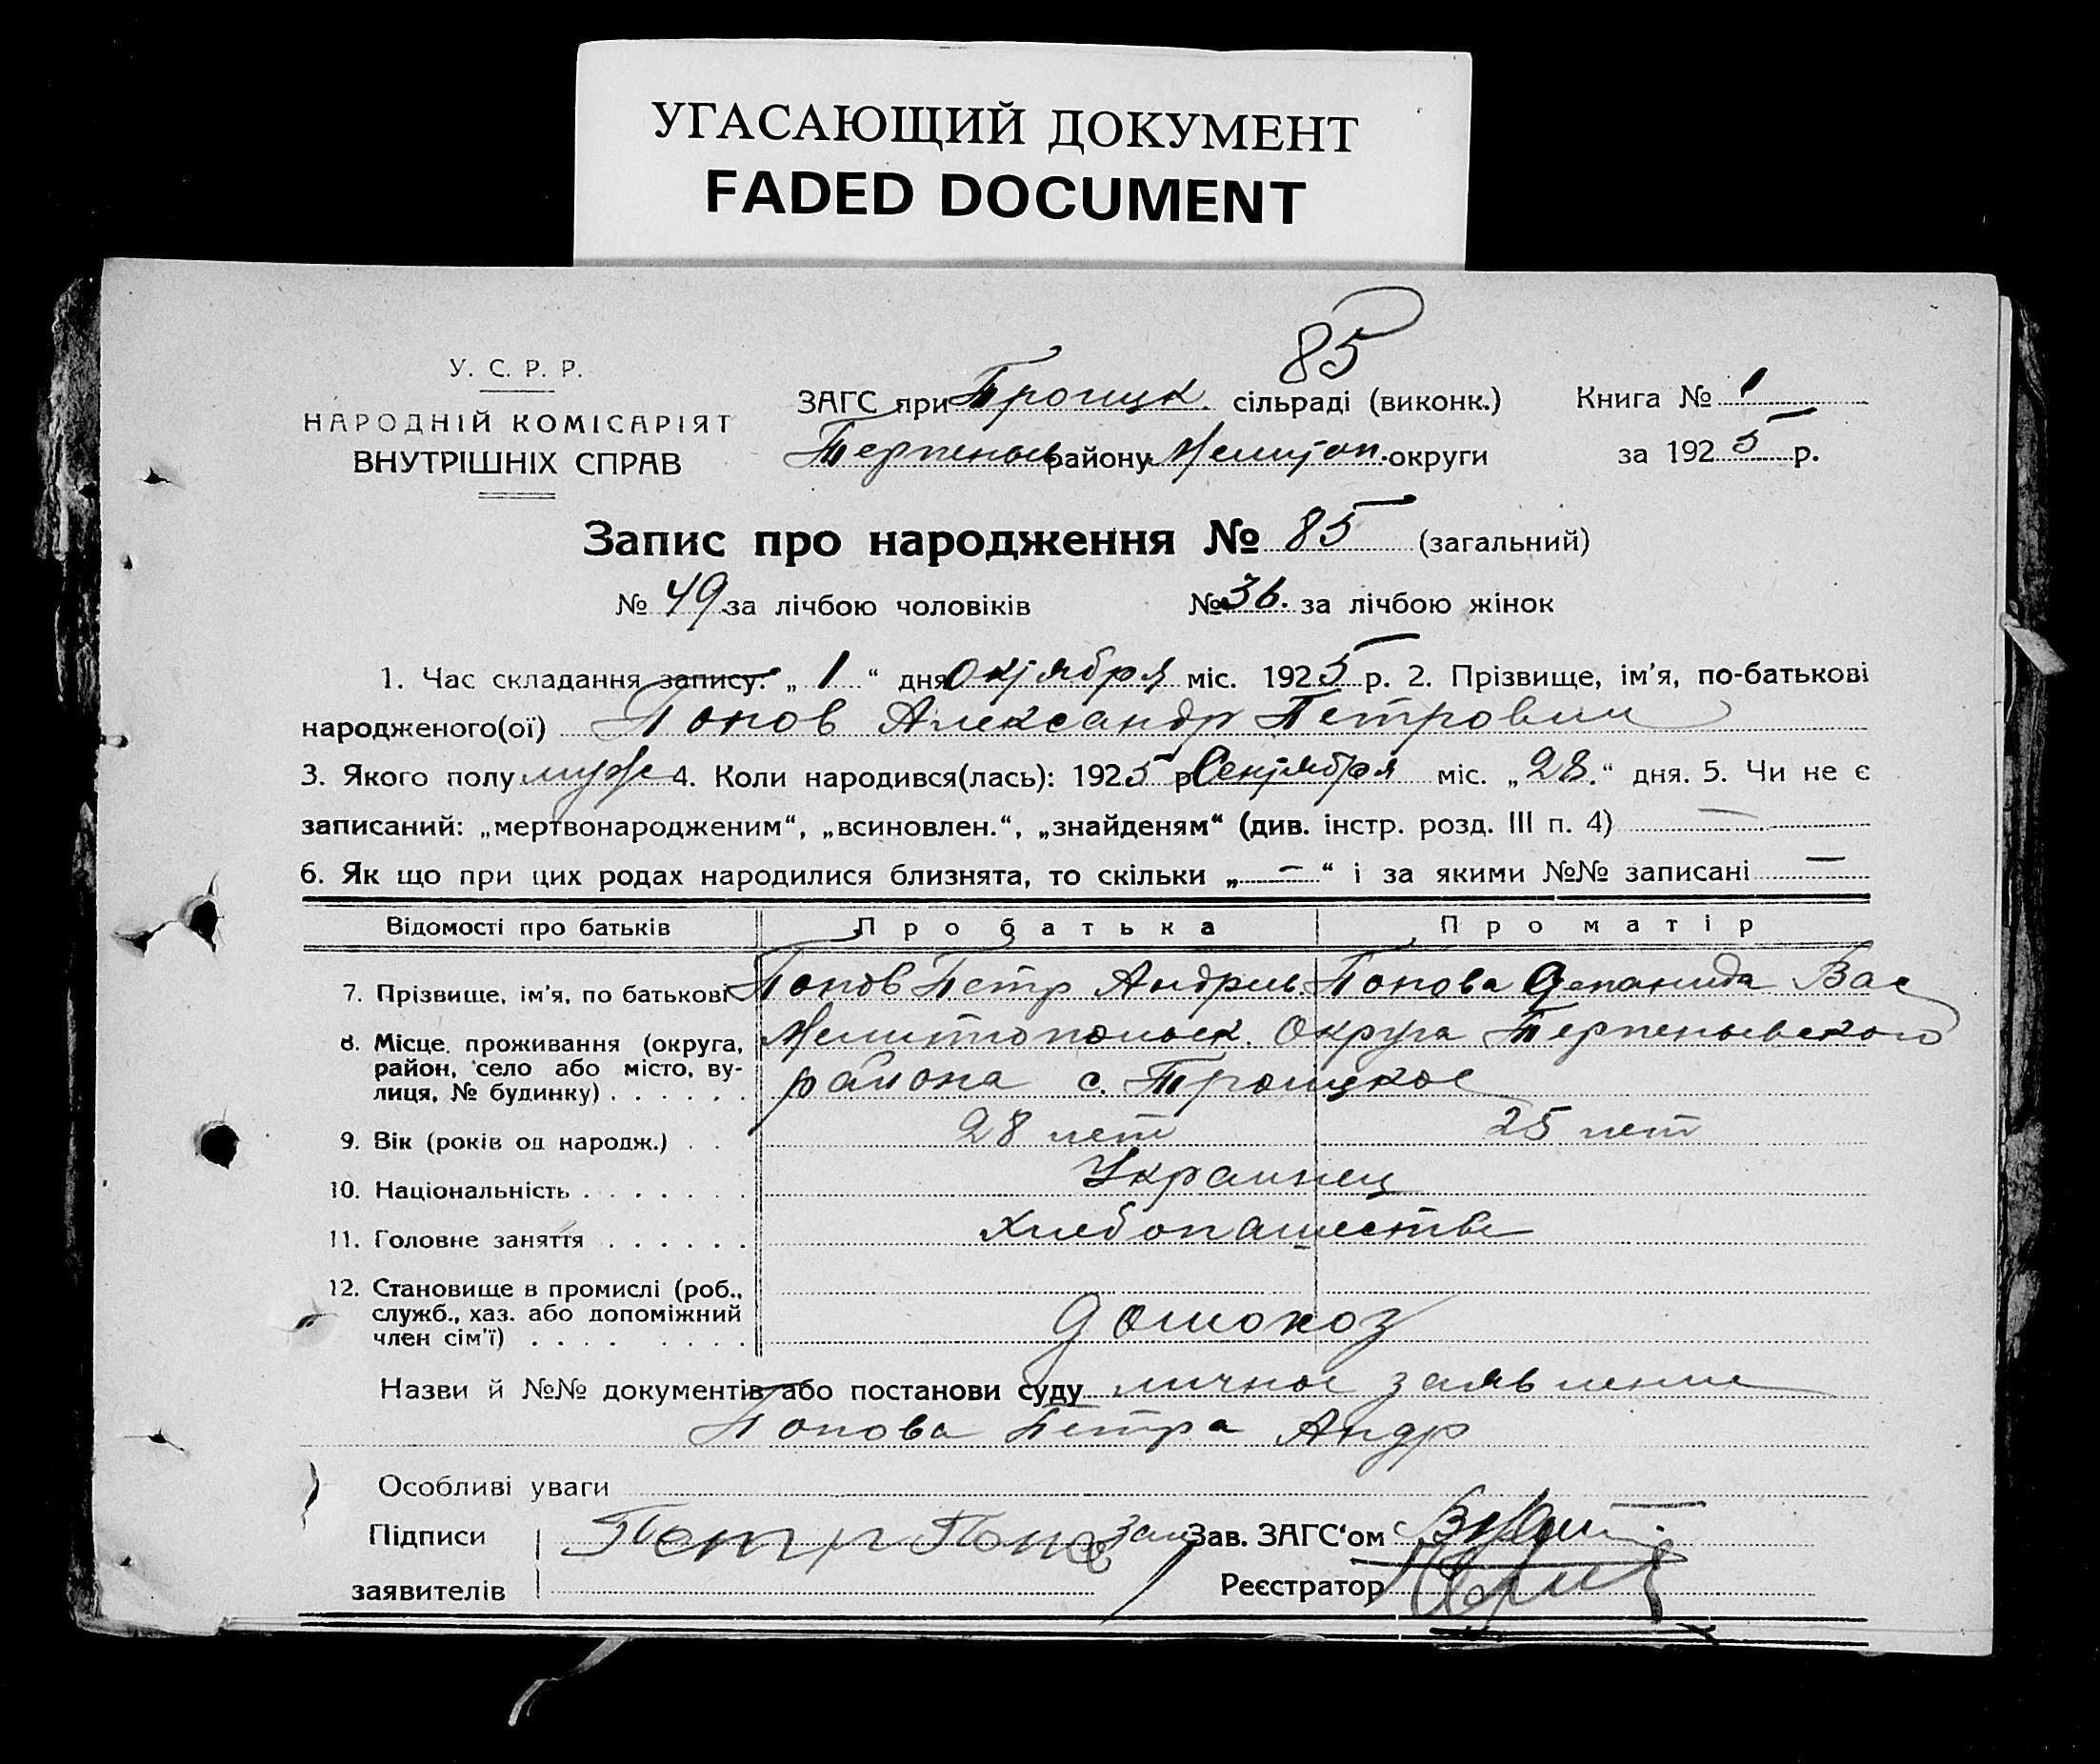 УГАСАЮЩИЙ ДОКУМЕНТ
FADED DOCUMENT
85
У. С. Р. Р.
НАРОДНІЙ КОМІСАРІЯТ
ВНУТРІШНІХ СПРАВ
ЗАГС при Троицк. сільраді (виконк.) Книга № 1
Терпеньев району Мелитоп. округи за 1925 р.
Запис про народження № 85 (загальний)
№ 49 за лічбою чоловіків № 36. за лічбою жінок
1. Час складання запису: „ 1 “ дня Октября міс. 1925 р. 2. Прізвище, ім'я, по-батькові
народженого(ої) Попов Александр Петрович
3. Якого полу муж 4. Коли народився(лась): 1925 р Сентября міс. „28.“ дня. 5. Чи не є
записаний: „мертвонародженим“, „всиновлен.“, „знайденям“ (див. інстр. розд. III п. 4) —
6. Як що при цих родах народилися близнята, то скільки „—“ і за якими №№ записані —
Відомості про батьків Про батька Про матір
7. Прізвище, ім'я, по батькові Попов Петр Андреев. Попова Степанида Вас
8. Місце проживання (округа, Мелитопольск. Округа Терпеньевского
район, село або місто, ву-
лиця, № будинку) . . . . . . района с. Троицкое
9. Вік (років од народж.) . . 28 лет 25 лет
10. Національність . . . . . . . Украинец
11. Головне заняття . . . . . . Хлебопашество
12. Становище в промислі (роб.,
служб., хаз. або допоміжний
член сім'ї) . . . . . . . . домохоз
Назви й №№ документів або постанови суду личное заявление
Попова Петра Андр
Особливі уваги
Підписи Петр Попов Зам Зав. ЗАГС‘ом
заявителів Реєстратор